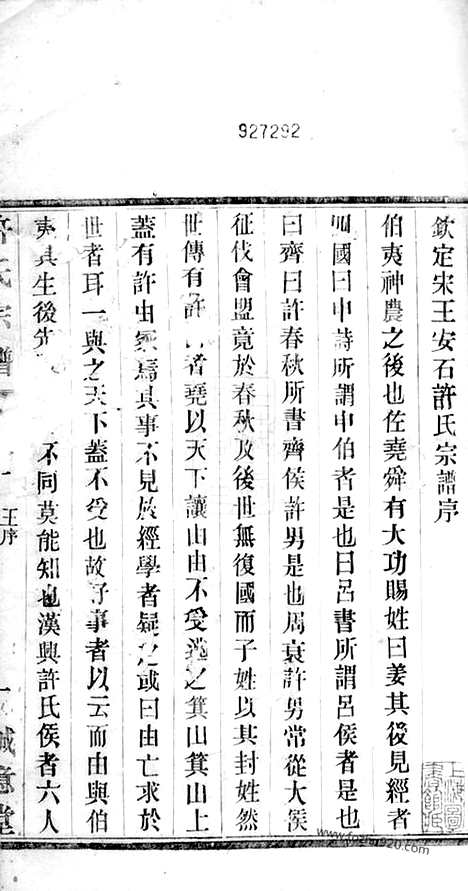 927292
欽定宋王安石許氏宗譜序
伯夷神農之後也佐堯舜有大功賜姓曰姜其後見經者
四國曰申詩所謂申伯者是也曰呂書所謂呂侯者是也
曰齊曰許春秋所書齊侯許男是也周衰許男常從大侯
征伐會盟竟於春秋及後世無復國而子姓以其封姓然
世傳有許由者堯以天下讓由由不受逃之箕山箕山上
蓋有許由冢焉其事不見於經學者疑之或曰由亡求於
世者耳一與之天下蓋不受也故好事者以云而由與伯
夷其生後先 不同莫能知也漢興許氏侯者六人
許氏宗譜
王序
一
誠意堂
www.fozhu920.com